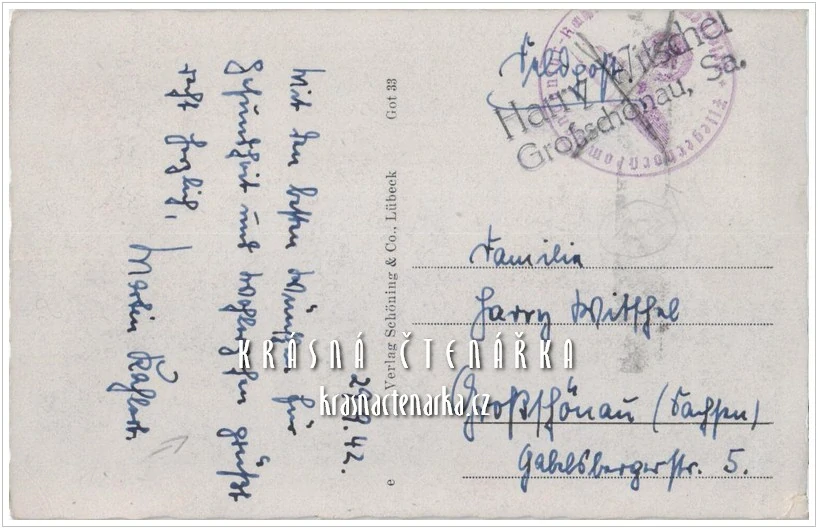 29.9.42.
Mit den besten Wünschen für
Gesundheit und Wohlergehen grüßt
recht herzlich,
Martin
e Verlag Schöning & Co., Lübeck Got 33
Feldpost
Harry Witschel
Großschönau, Sa.
Fliegerhorstkom
Familie
Harry Witschel
Großschönau (Sachsen)
Gabelsbergerstr. 5.
KRÁSNÁ ČTENÁŘKA
krasnactenarka.cz